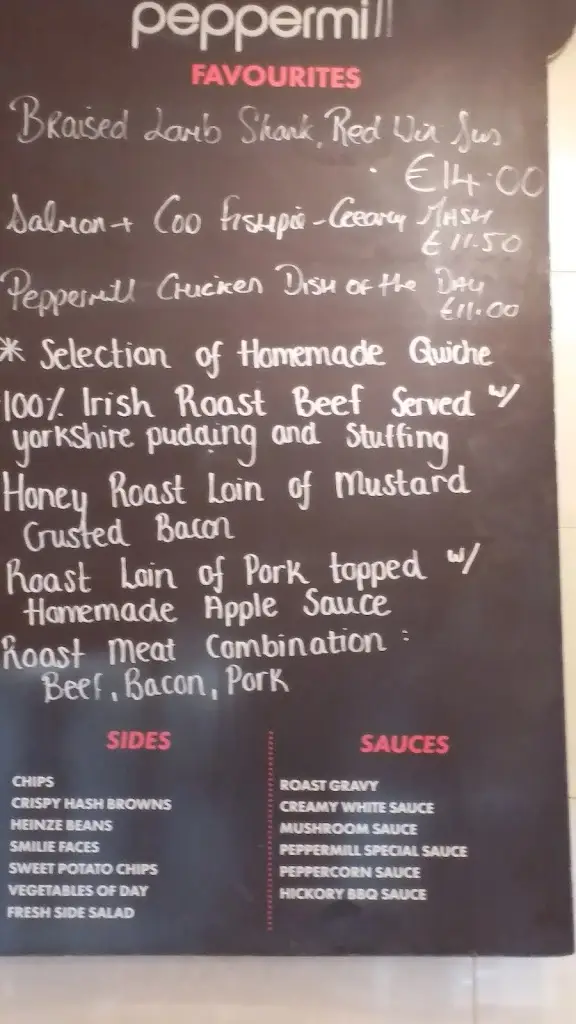 peppermill
FAVOURITES
Braised Lamb Shank, Red Win Jus
€14.00
Salmon + Cod Fishpie - Creamy MASH
€11.50
Peppermill Chicken Dish of the Day
€11.00
* Selection of Homemade Quiche
100% Irish Roast Beef Served w/
yorkshire pudding and Stuffing
Honey Roast Loin of Mustard
Crusted Bacon
Roast Loin of Pork topped w/
Homemade Apple Sauce
Roast Meat Combination:
Beef, Bacon, Pork
SIDES
CHIPS
CRISPY HASH BROWNS
HEINZE BEANS
SMILIE FACES
SWEET POTATO CHIPS
VEGETABLES OF DAY
FRESH SIDE SALAD
SAUCES
ROAST GRAVY
CREAMY WHITE SAUCE
MUSHROOM SAUCE
PEPPERMILL SPECIAL SAUCE
PEPPERCORN SAUCE
HICKORY BBQ SAUCE